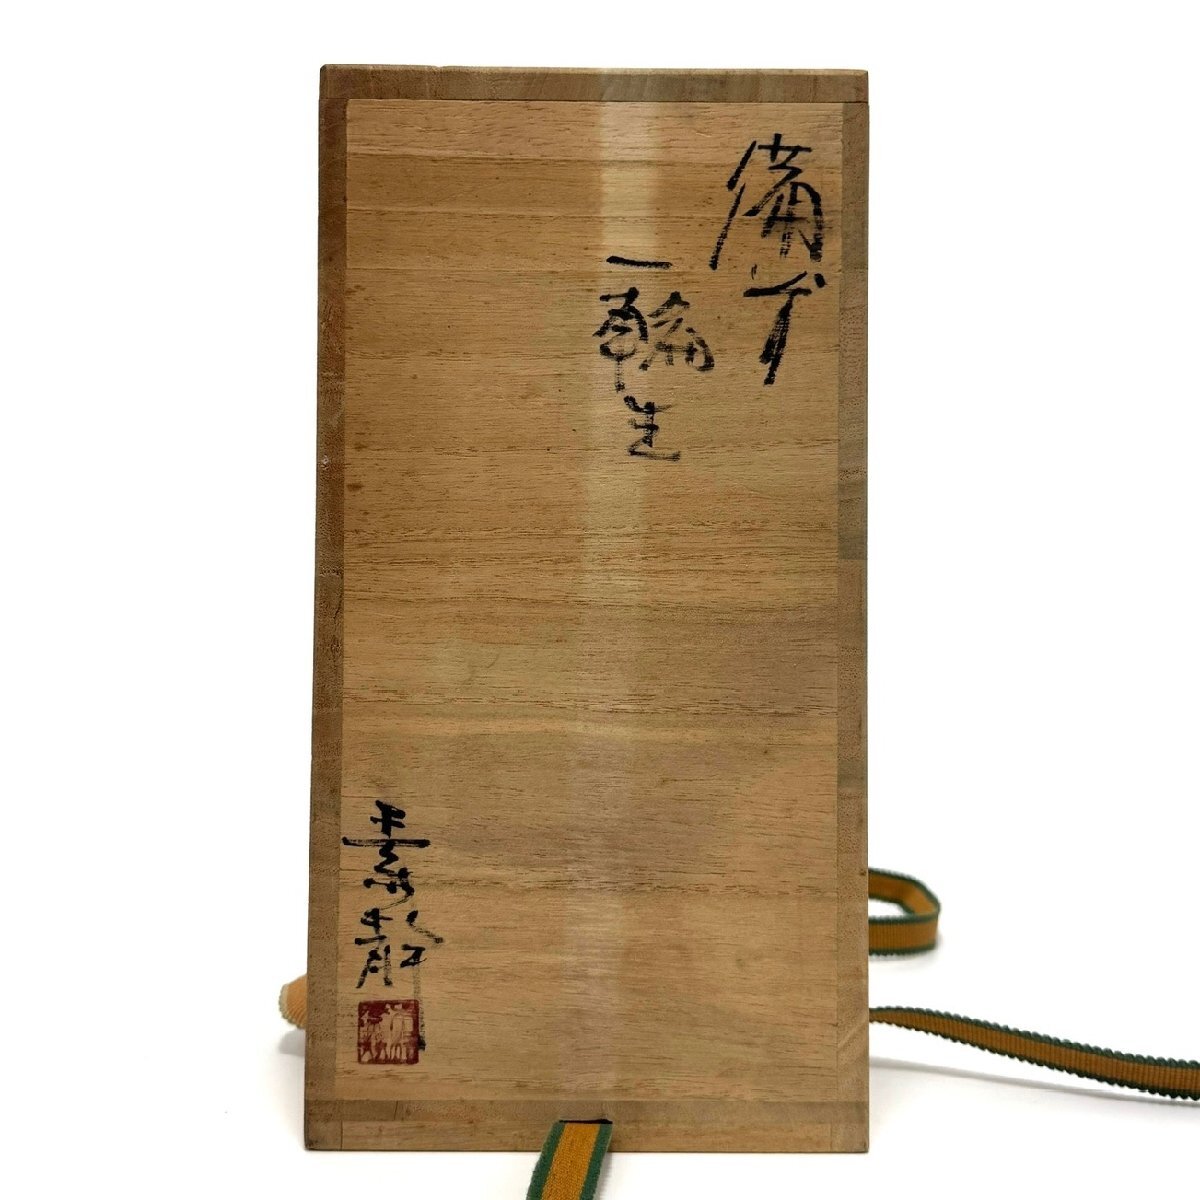 備前
一輪生
素静